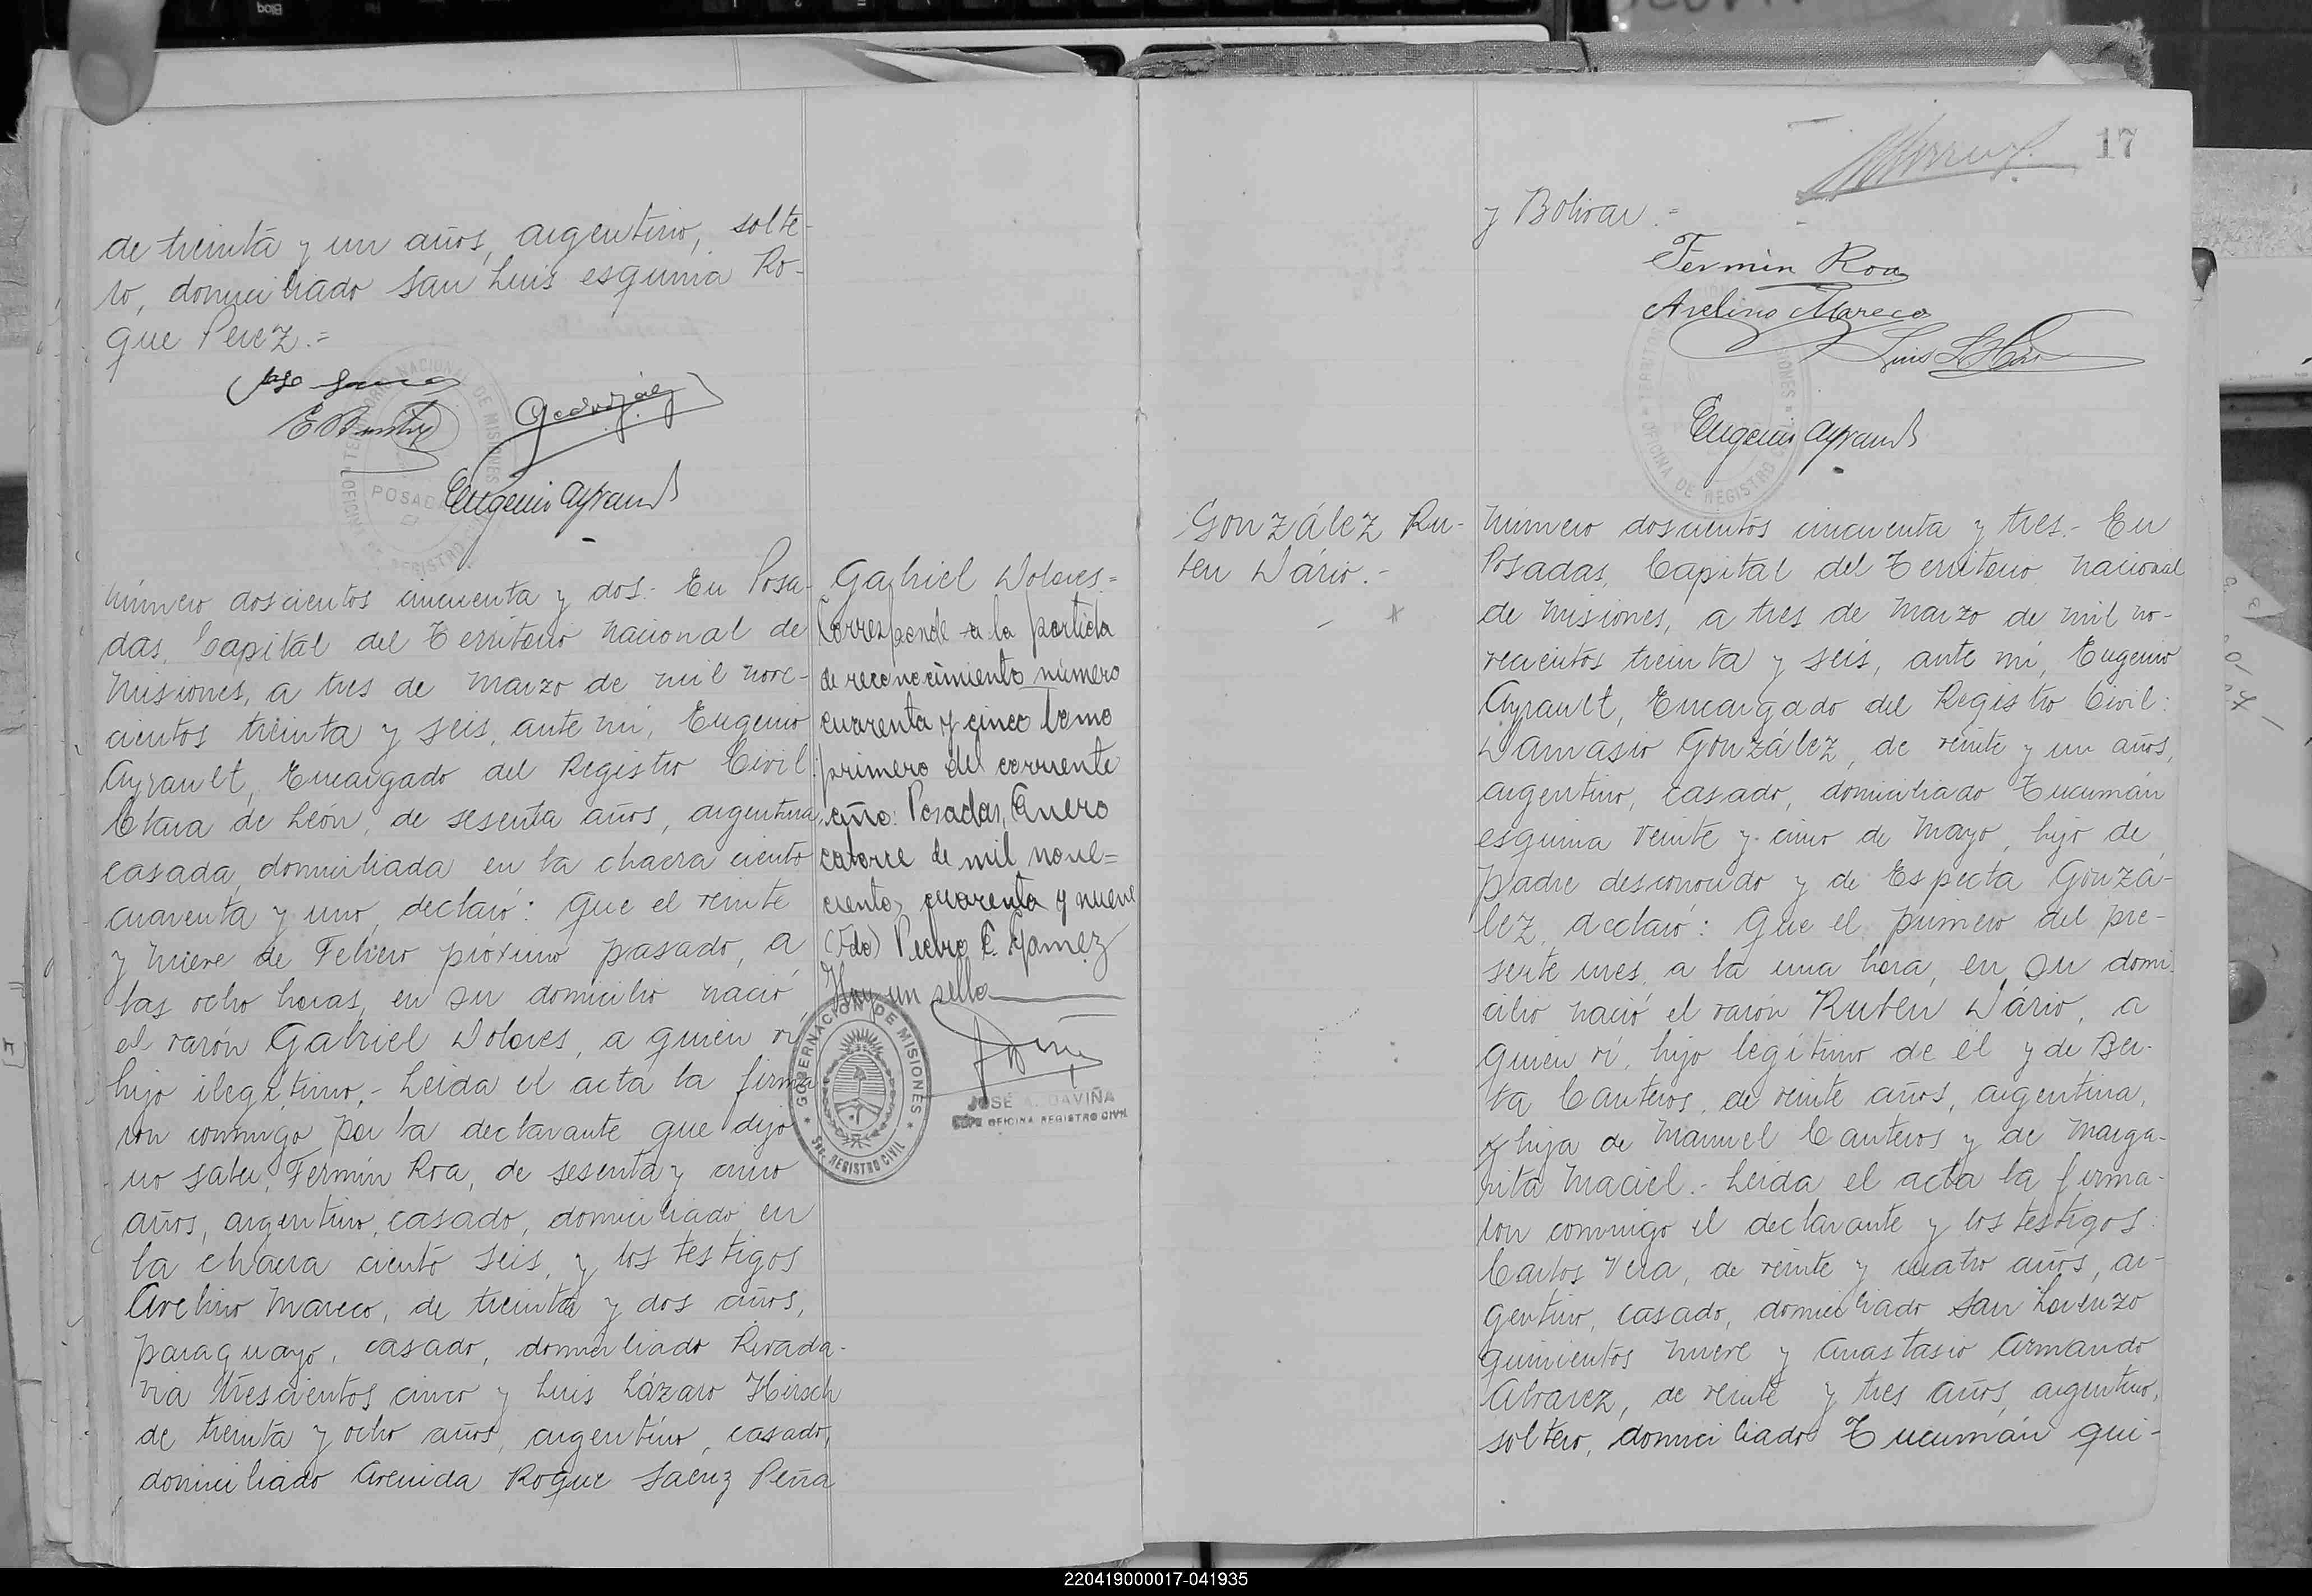 de treinta y un años, argentino, solte-
ro, domiciliado San Luis esquina Ro-
que Perez.=
Eugenio Ayrault
Número doscientos cincuenta y dos.- En Posa-
das, Capital del Territorio Nacional de
Misiones, a tres de Marzo de mil nove-
cientos treinta y seis, ante mí, Eugenio
Ayrault, Encargado del Registro Civil:
Clara de León, de sesenta años, argentina,
casada, domiciliada en la chacra ciento
cuarenta y uno, declaró: Que el veinte
y nueve de Febrero próximo pasado, a
las ocho horas, en su domicilio nació
el varón Gabriel Dolores, a quien ví,
hijo ilegítimo.- Leída el acta la firma
ron conmigo por la declarante que dijo
no saber, Fermín Roa, de sesenta y cinco
años, argentino, casado, domiciliado en
la chacra ciento seis, y los testigos
Avelino Mareco, de treinta y dos años,
paraguayo, casado, domiciliado Rivada-
via trescientos cinco y Luis Lázaro Hirsch
de treinta y ocho años, argentino, casado,
domiciliado Avenida Roque Saenz Peña
Gabriel Dolores=
Corresponde a la partida
de reconocimiento número
cuarenta y cinco tomo
primero del corriente
año: Posadas, Enero
catorce de mil nove=
cientos cuarenta y nueve
(Fdo) Pedro C. Gomez
Hay un sello
GOBERNACION DE MISIONES
REGISTRO CIVIL
JOSÉ A. DAVIÑA
OFICINA REGISTRO CIVIL
17
y Bolivar.=
Fermin Roa
Avelino Mareco
Luis L. Hirsch
Eugenio Ayrault
González Ru-
ben Dário.-
Número doscientos cincuenta y tres.- En
Posadas, Capital del Territorio Nacional
de Misiones, a tres de Marzo de mil no-
vecientos treinta y seis, ante mí, Eugenio
Ayrault, Encargado del Registro Civil:
Damasio González, de veinte y un años,
argentino, casado, domiciliado Tucumán
esquina Veinte y cinco de Mayo, hijo de
padre desconocido y de Especta Gonzá-
lez, declaró: Que el primero del pre-
sente mes, a la una hora, en su domi
cilio nació el varón Ruben Dário, a
quien ví, hijo legítimo de él y de Ber-
ta Canteros, de veinte años, argentina,
hija de Manuel Canteros y de Marga-
rita Maciel.- Leída el acta la firma-
ron conmigo el declarante y los testigos:
Carlos Vera, de veinte y cuatro años, ar-
gentino, casado, domiciliado San Lorenzo
quinientos nueve y Anastasio Armando
Alvarez, de veinte y tres años, argentino,
soltero, domiciliado Tucumán qui-
220419000017-041935